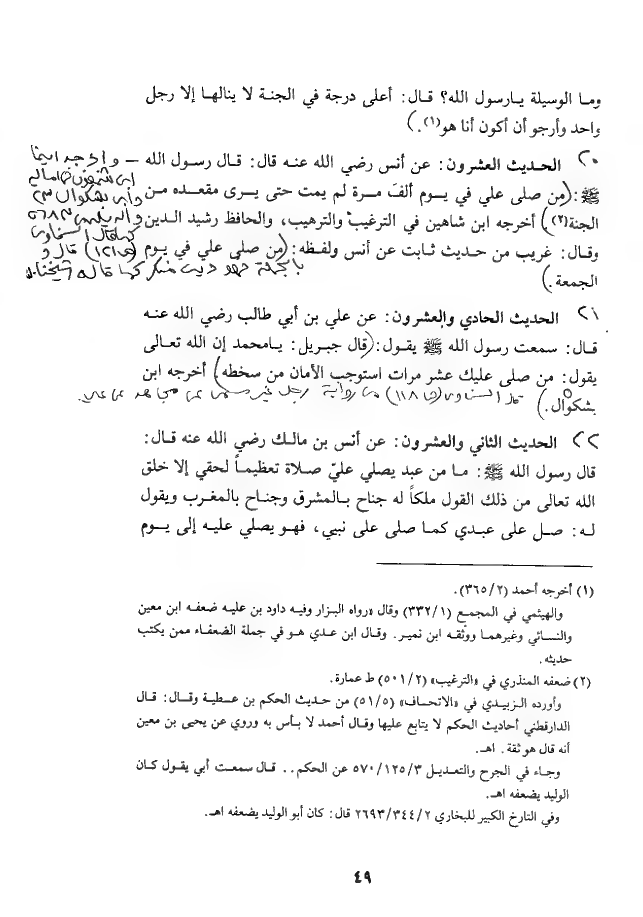 وما الوسيلة يارسول الله؟ قال: أعلى درجة في الجنة لا ينالها إلا رجل
واحد وأرجو أن أكون أنا هو(١).)
٢٠ الحديث العشرون: عن أنس رضي الله عنه قال: قال رسول الله
ﷺ: (من صلى علي في يوم ألف مرة لم يمت حتى يرى مقعده من
الجنة(٢)) أخرجه ابن شاهين في الترغيب والترهيب، والحافظ رشيد الدين
وقال: غريب من حديث ثابت عن أنس ولفظه: (من صلى علي في يوم
الجمعة.)
٢١ الحديث الحادي والعشرون: عن علي بن أبي طالب رضي الله عنه
قال: سمعت رسول الله ﷺ يقول: (قال جبريل: يامحمد إن الله تعالى
يقول: من صلى عليك عشر مرات استوجب الأمان من سخطه) أخرجه ابن
بشكوال.) قال السخاوي (ص ١١٨) من رواية رجل غير مسمى عن مجاهد عن علي.
٢٢ الحديث الثاني والعشرون: عن أنس بن مالك رضي الله عنه قال:
قال رسول الله ﷺ: ما من عبد يصلي عليّ صلاة تعظيماً لحقي إلا خلق
الله تعالى من ذلك القول ملكاً له جناح بالمشرق وجناح بالمغرب ويقول
له: صل على عبدي كما صلى على نبيي، فهو يصلي عليه إلى يوم
(١) أخرجه أحمد (٣٦٥/٢).
والهيثمي في المجمع (٣٣٢/١) وقال «رواه البزار وفيه داود بن عليه ضعفه ابن معين
والنسائي وغيرهما ووثقه ابن نمير. وقال ابن عدي هو في جملة الضعفاء ممن يكتب
حديثه.
(٢) ضعفه المنذري في «الترغيب» (٥٠١/٢) ط عمارة.
وأورده الزبيدي في «الاتحاف» (٥١/٥) من حديث الحكم بن عطية وقال: قال
الدارقطني أحاديث الحكم لا يتابع عليها وقال أحمد لا بأس به وروي عن يحيى بن معين
أنه قال هو ثقة. اهـ.
وجاء في الجرح والتعديل ٥٧٠/١٢٥/٣ عن الحكم.. قال سمعت أبي يقول كان
الوليد يضعفه اهـ.
وفي التاريخ الكبير للبخاري ٢٦٩٣/٣٤٤/٢ قال: كان أبو الوليد يضعفه اهـ.
٤٩